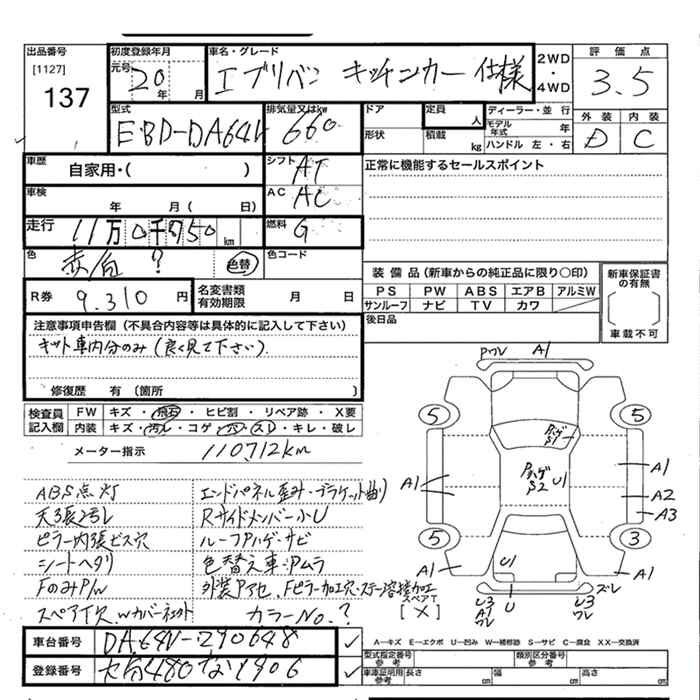 出品番号
[1127]
137
初度登録年月
元号 20年 月
車名・グレード
エブリバン キッチンカー 仕様
2WD
・
4WD
評価点
3.5
型式
EBD-DA64V
排気量又はkw
660
ドア
形状
定員
人
積載
kg
ディーラー・並行
モデル年式 年
ハンドル 左・右
外装 D
内装 C
車歴
自家用・( )
シフト AT
正常に機能するセールスポイント
車検
年 月( 日)
AC AC
走行
11万0千750km
燃料 G
色
赤/白 ?
色替
色コード
R券 9.310円
名変書類
有効期限
月 日
装備品(新車からの純正品に限り○印)
PS PW ABS エアB アルミW
サンルーフ ナビ TV カワ
後日品
新車保証書
の有無
車載不可
注意事項申告欄(不具合内容等は具体的に記入して下さい)
キット車内分のみ(良く見て下さい).
修復歴 有(箇所 )
検査員
記入欄
FW キズ・飛石・ヒビ割・リペア跡・X要
内装 キズ・汚レ・コゲ・穴・スレ・キレ・破レ
メーター指示
110712km
ABS点灯
エンドパネル歪み・ブラケット曲り
天張2号レ
Rサイドメンバー小U
ピラー内張ビス穴
ルーフPハゲ・サビ
シートヘタリ
色替え車:Pムラ
FのみP/W
外装Pアセ、Fピラー加工穴・ステー溶接加工
スペア欠、
カラーNo.?
PWV A1
5 5
Pハゲ
S1
Pハゲ
S2
U1
A1 A1
A2
A3
5 3
A1 U1 A1
スペアT
[X]
U3
A1
ワレ
U
U3
ワレ
ズレ
車台番号
DA64V-290648
登録番号
A…キズ E…エクボ U…凹み W…補修跡 S…サビ C…腐食 XX…交換済
型式指定番号
参考
類別区分番号
参考
車庫証明用
参考
長さ cm
幅 cm
高さ cm